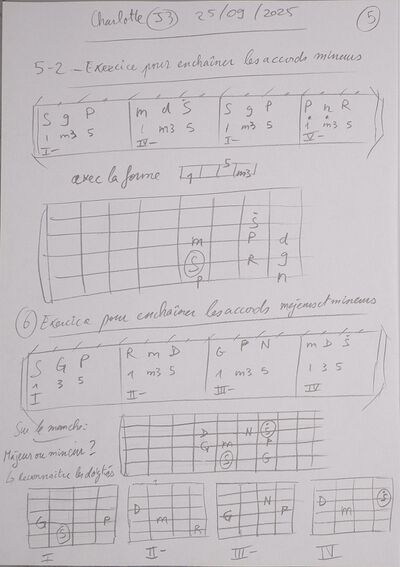 Charlotte J3 25/09/2025 5
5-2 - Exercice pour enchaîner les accords mineurs
S g P m d Ṡ S g P P n R
1 m3 5 1 m3 5 1 m3 5 1 m3 5
I- IV- I- V-
avec la forme 1 5 m3
Ṡ
m P d
S R g
P n
6 Exercice pour enchaîner les accords majeurs et mineurs
S G P R m D G P N m D Ṡ
1 3 5 1 m3 5 1 m3 5 1 3 5
I II- III- IV
Sur le manche:
Majeur ou mineur?
↳ reconnaître les doigtés
D N Ṡ
G m P
S R G
G S P
D m R
G N P
D m Ṡ
I II- III- IV